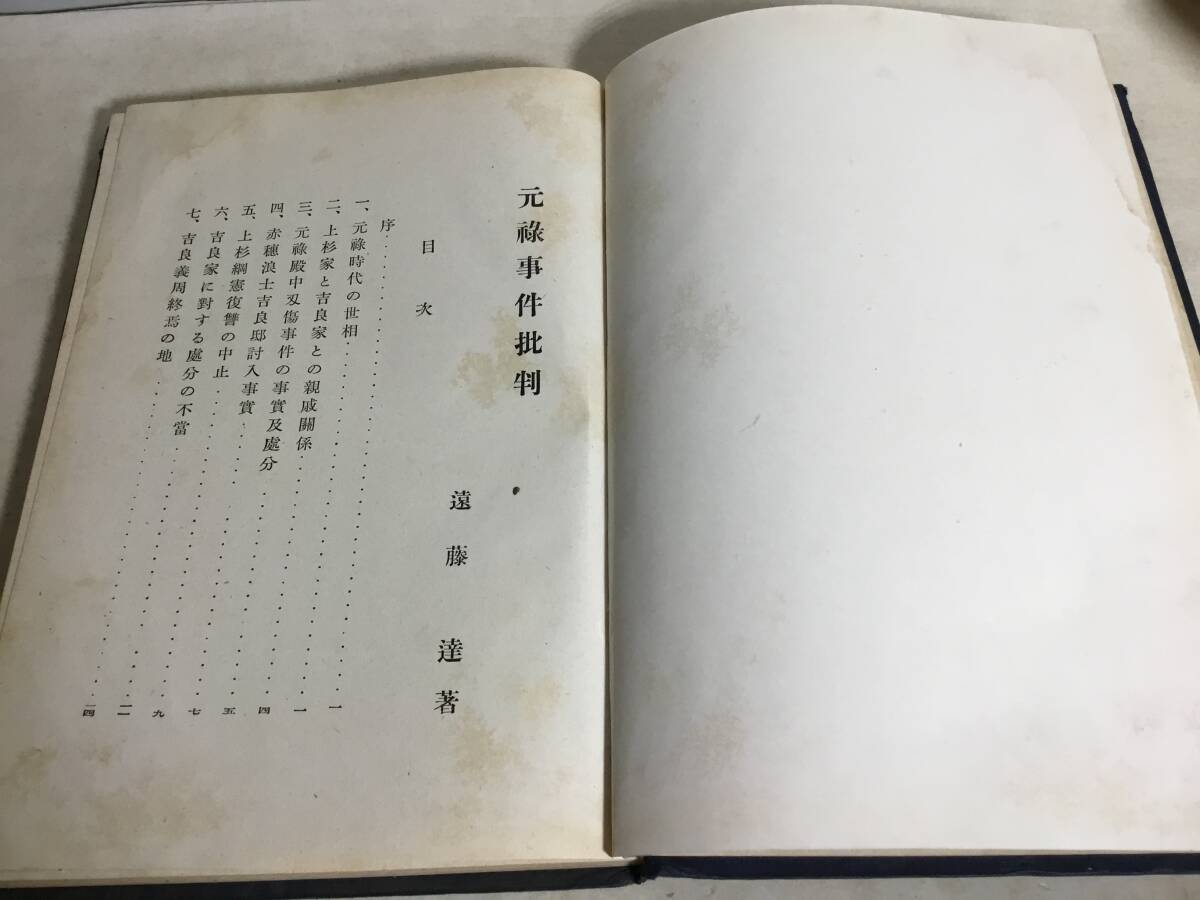 元祿事件批判
遠藤達著
目次
序‥‥‥‥‥‥‥‥‥‥一
一、元祿時代の世相‥‥‥‥‥‥‥‥‥‥一
二、上杉家と吉良家との親戚關係‥‥‥‥‥‥‥‥四
三、元祿殿中刄傷事件の事實及處分‥‥‥‥‥‥‥五
四、赤穗浪士吉良邸討入事實‥‥‥‥‥‥‥‥七
五、上杉綱憲復讐の中止‥‥‥‥‥‥‥‥九
六、吉良家に對する處分の不當‥‥‥‥‥‥‥一一
七、吉良義周終焉の地‥‥‥‥‥‥‥‥一四